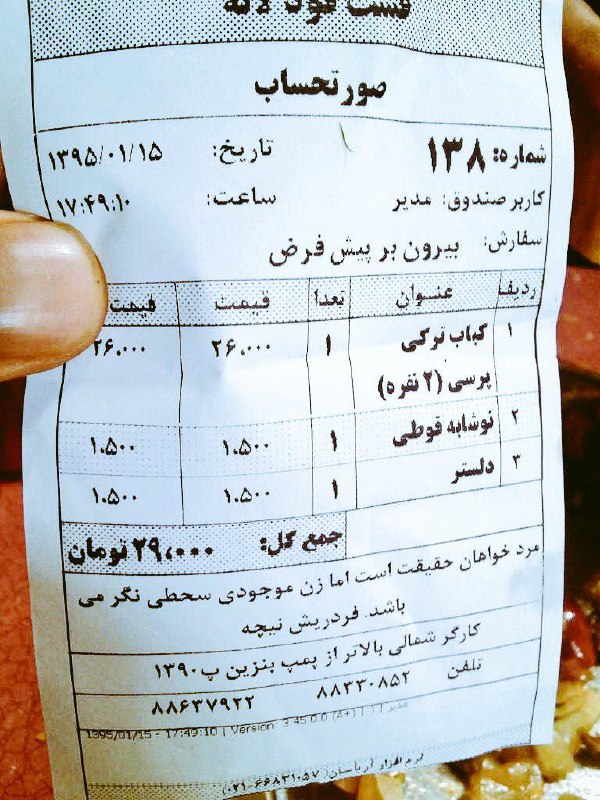 فست فود لاله
صورتحساب
شماره: ۱۳۸ تاریخ: ۱۳۹۵/۰۱/۱۵
کاربر صندوق: مدیر ساعت: ۱۷:۴۹:۱۰
سفارش: بیرون بر پیش فرض
ردیف عنوان تعدا قیمت قیمت
۱ کباب ترکی ۱ ۲۶،۰۰۰ ۲۶،۰۰۰
پرسی (۲ نفره)
۲ نوشابه قوطی ۱ ۱،۵۰۰ ۱،۵۰۰
۳ دلستر ۱ ۱،۵۰۰ ۱،۵۰۰
جمع کل: ۲۹،۰۰۰ تومان
مرد خواهان حقیقت است اما زن موجودی سحطی نگر می
باشد. فردریش نیچه
کارگر شمالی بالاتر از پمپ بنزین پ۱۳۹۰
تلفن ۸۸۳۳۰۸۵۲ ۸۸۶۳۷۹۲۲
1395/01/15 - 17:49:10 | Version: 3.45.0.0 (A+) | مدیر
نرم افزار آریاسان (۰۲۱-۶۶۸۳۱۰۵۷)